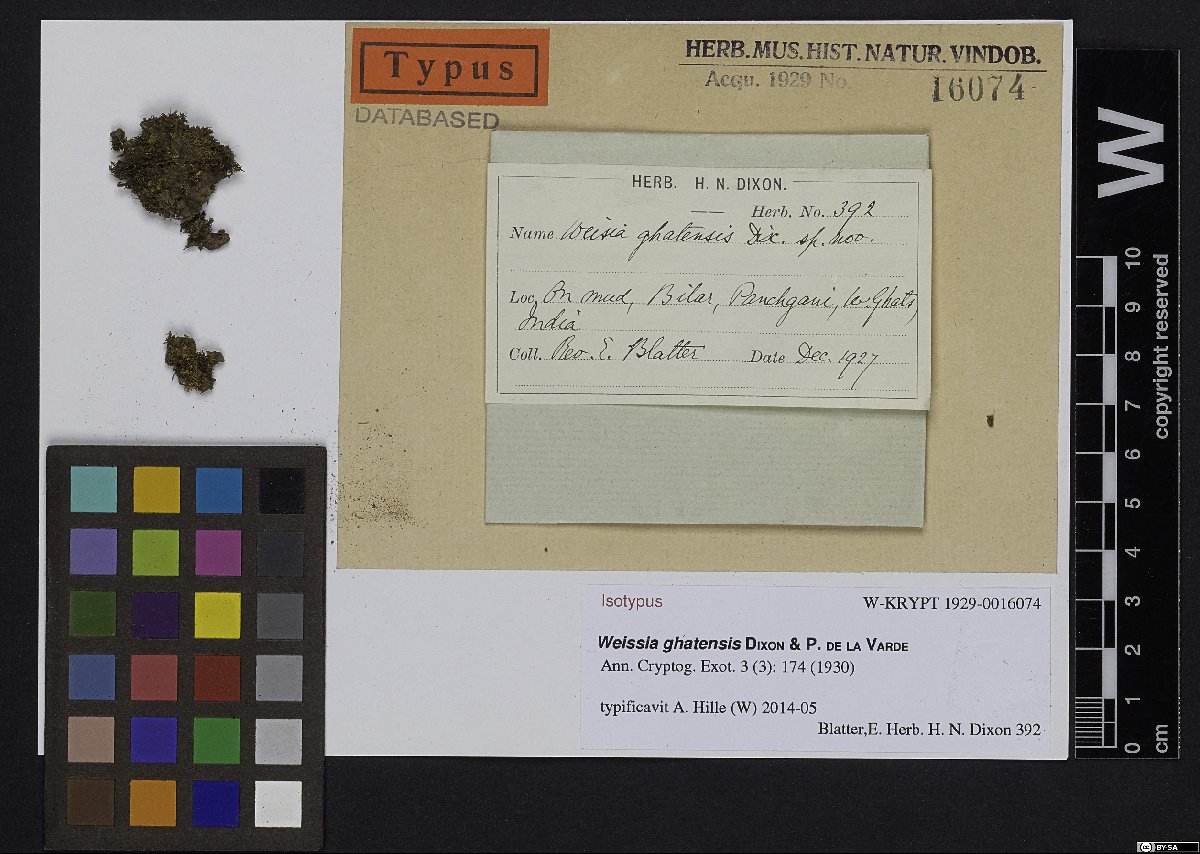 Typus
DATABASED
HERB. MUS. HIST. NATUR. VINDOB.
Acqu. 1929 No.
16074
HERB. H. N. DIXON.
Herb. No. 392
Name Weisia ghatensis Dix. sp. nov.
Loc. On mud, Bilar, Panchgani, W. Ghats,
India
Coll. Rev. E. Blatter Date Dec. 1927
Isotypus
W-KRYPT 1929-0016074
Weissia ghatensis DIXON & P. DE LA VARDE
Ann. Cryptog. Exot. 3 (3): 174 (1930)
typificavit A. Hille (W) 2014-05
Blatter,E. Herb. H. N. Dixon 392
W
copyright reserved
10
9
8
7
6
5
4
3
2
1
0
cm
cc BY-SA